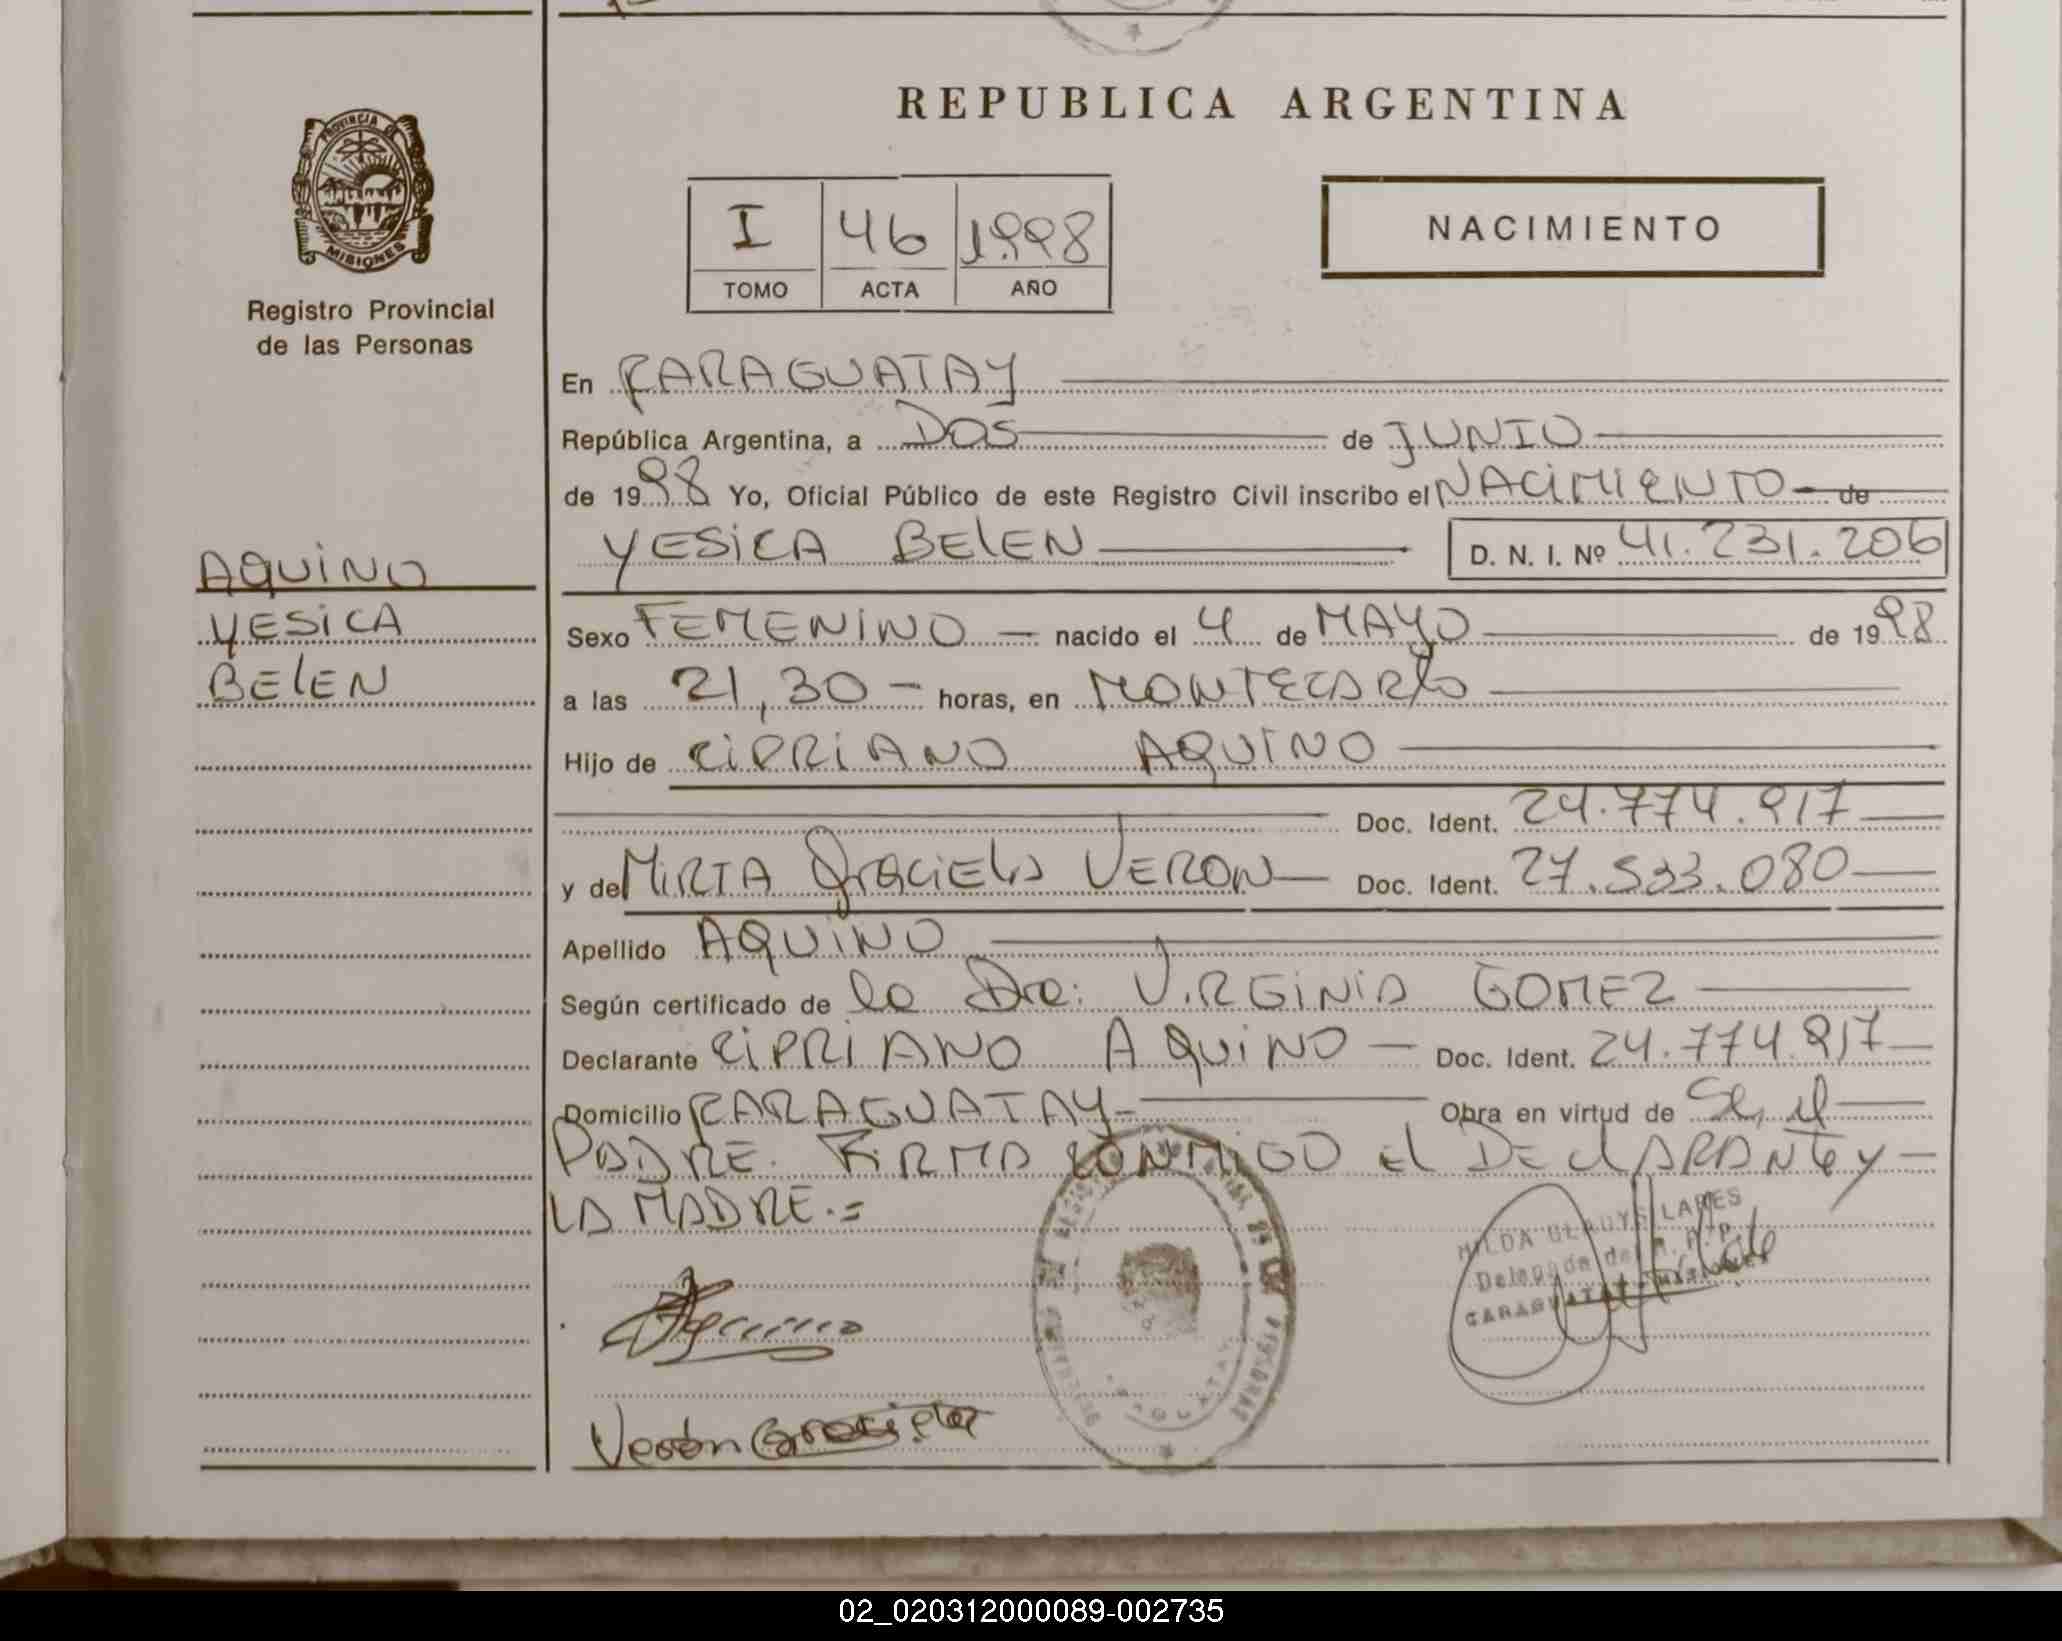 REPUBLICA ARGENTINA
PROVINCIA DE
MISIONES
Registro Provincial
de las Personas
I 46 1998
TOMO ACTA AÑO
NACIMIENTO
En CARAGUATAY
República Argentina, a DOS de JUNIO
de 1998 Yo, Oficial Público de este Registro Civil inscribo el NACIMIENTO de
YESICA BELEN D. N. I. Nº 41.231.206
AQUINO
YESICA
BELEN
Sexo FEMENINO nacido el 4 de MAYO de 1998
a las 21,30 horas, en MONTECARLO
Hijo de CIPRIANO AQUINO
Doc. Ident. 24.774.917
y de MIRTA Graciela VERON Doc. Ident. 27.533.080
Apellido AQUINO
Según certificado de la Dra: VIRGINIA GOMEZ
Declarante CIPRIANO AQUINO Doc. Ident. 24.774.917
Domicilio CARAGUATAY Obra en virtud de
PADRE. FIRMA CONMIGO El DEClARANTE y
LA MADRE.=
HILDA GLADYS LARES
Delegada del R. P. P.
CARAGUATAY - MISIONES
Aquino
Verón Graciela
02_020312000089-002735